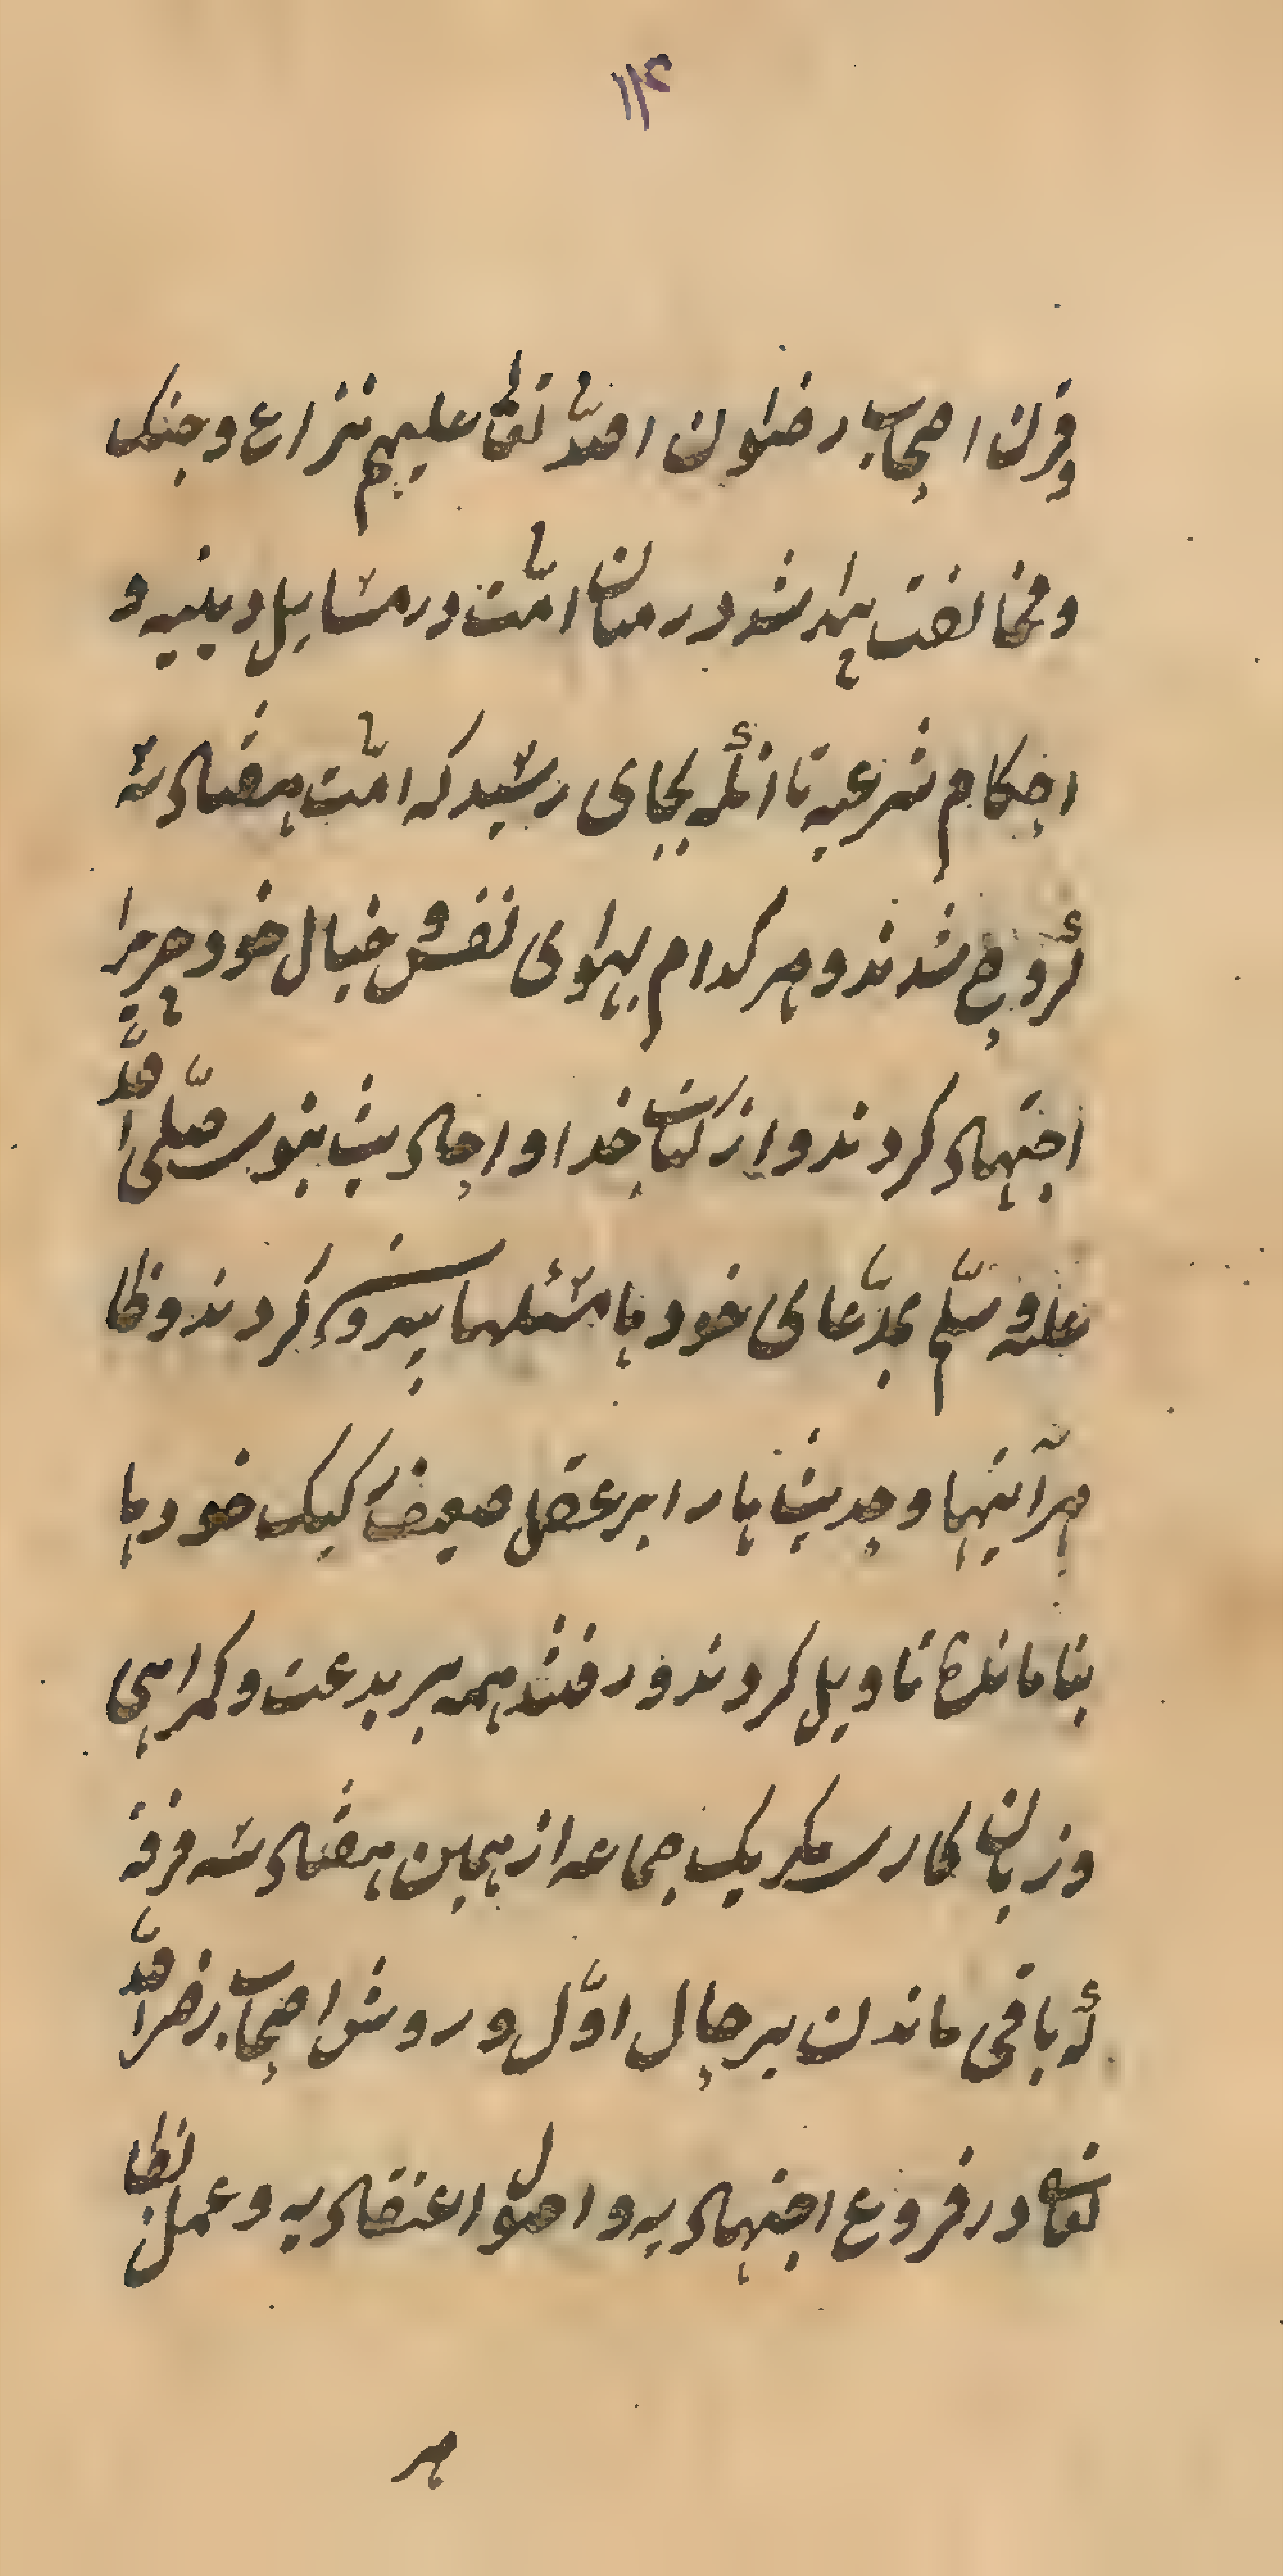 ۱۱۴
وقرن اصحاب رضوان الله تعالی علیهم نزاع وجنک
ومخالفت پیدا شد ودر میان امّت در مسایل دینیه و
احکام شرعیه تا آنکه بجای رسید که امّت هفتاد سه
گروه شدند و هر کدام بهوای نفس وخیال خود چیزرا
اجتهاد کردند واز کتاب خدا و احادیث نبوی صلّی الله
علیه وسلّم بمدّعای خود ها مسئلها بیرون کردند وظا
هر آیتها وحدیث ها را بر عقل ضعیف رکیک خود ها
بنا مانده تاویل کردند ورفتند همه بر بدعت وکمراهی
وزیان کاری مکر یک جماعه از همین هفتاد سه فرقه
که باقی ماندن بر حال اوّل وروش اصحاب رضی الله
تعالی در فروع اجتهادیه و اصول اعتقادیه و عمل
هر